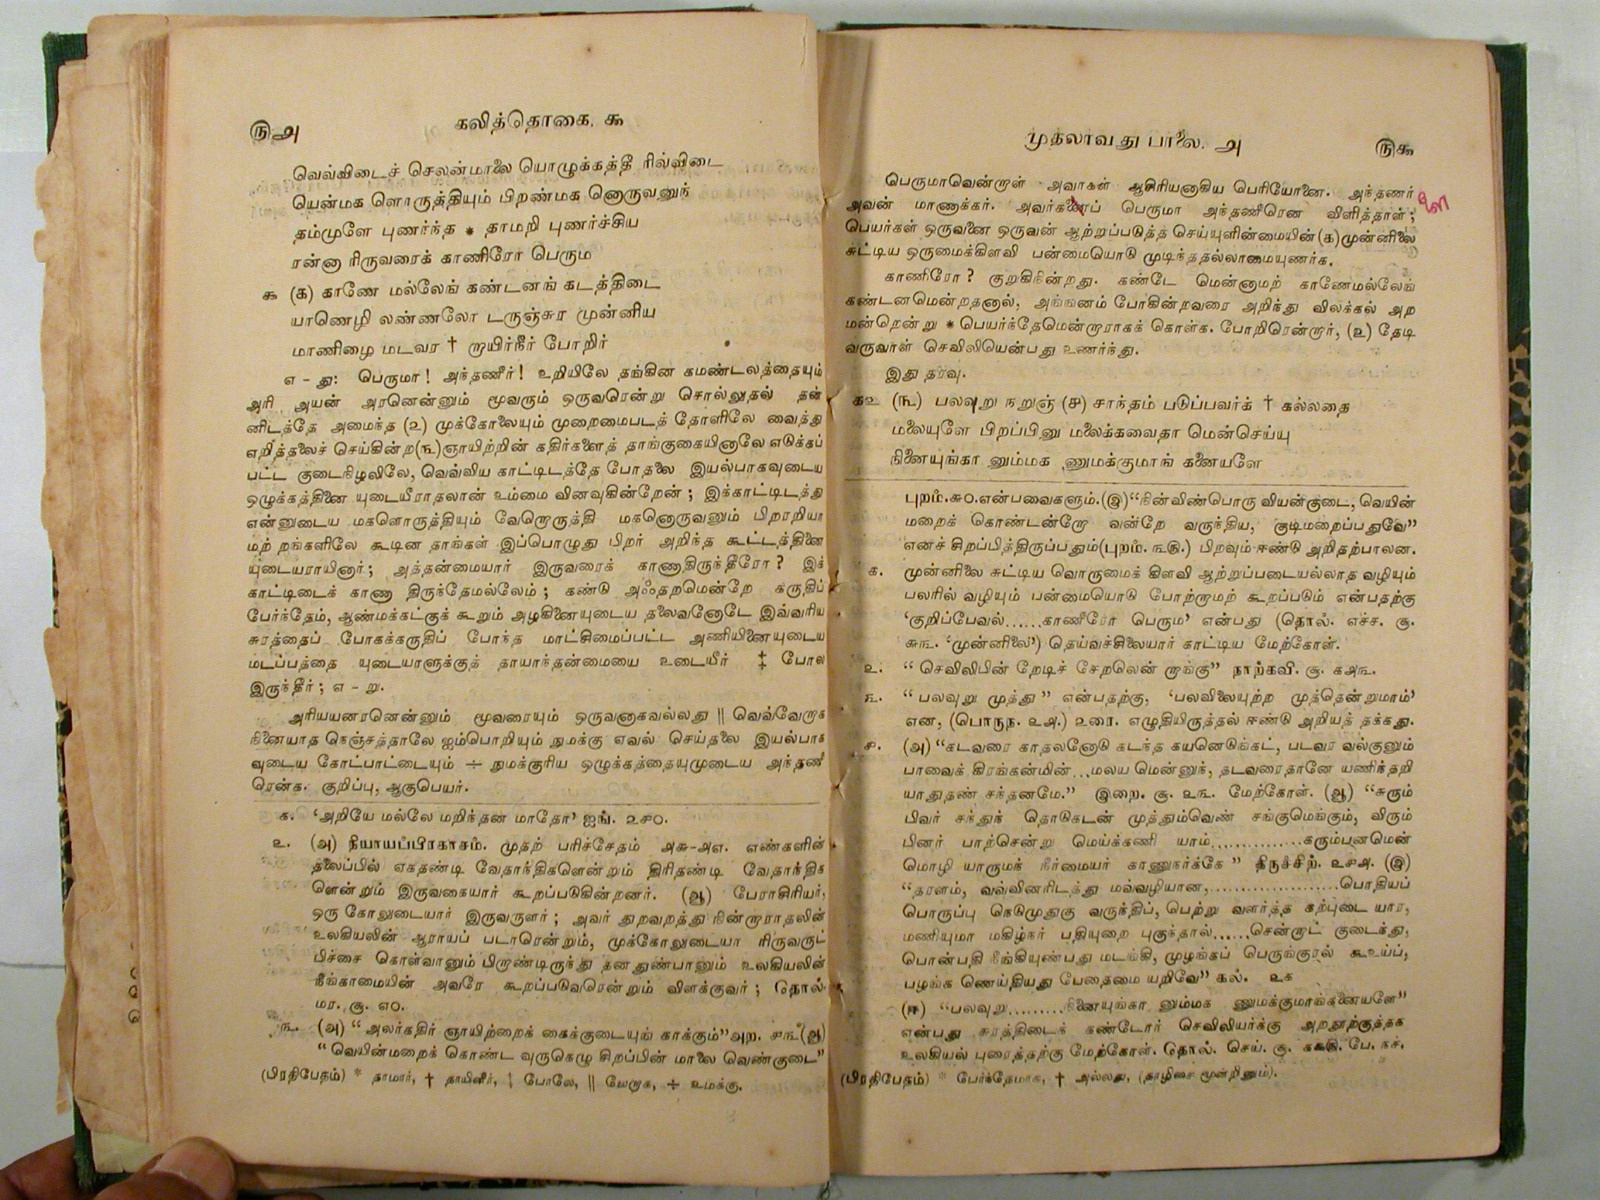 ௫௮
கலித்தொகை. ௯
வெவ்விடைச் செலன்மாலை யொழுக்கத்தீ ரிவ்விடை
யென்மக ளொருத்தியும் பிறண்மக னொருவனுந்
தம்முளே புணர்ந்த * தாமறி புணர்ச்சிய
ரன்னா ரிருவரைக் காணிரோ பெரும
௯ (க) காணே மல்லேங் கண்டனங் கடத்திடை
யாணெழி லண்ணலோ டருஞ்சுர முன்னிய
மாணிழை மடவர † றாயிர்நீர் போறிர்
எ - து: பெருமா! அந்தணீர்! உறியிலே தங்கின கமண்டலத்தையும்
அரி அயன் அரனென்னும் மூவரும் ஒருவரென்று சொல்லுதல் தன்
னிடத்தே அமைந்த (௨) முக்கோலையும் முறைமைபடத் தோளிலே வைத்து
எறித்தலைச் செய்கின்ற(௩)ஞாயிற்றின் கதிர்களைத் தாங்குகையினாலே எடுக்கப்
பட்ட குடைநிழலிலே, வெவ்விய காட்டிடத்தே போதலை இயல்பாகவுடைய
ஒழுக்கத்தினை யுடையீராதலான் உம்மை வினவுகின்றேன்; இக்காட்டிடத்து
என்னுடைய மகளொருத்தியும் வேறொருத்தி மகனொருவனும் பிறரறியா
மற் றங்களிலே கூடின தாங்கள் இப்பொழுது பிறர் அறிந்த கூட்டத்தினை
யுடையராயினார்; அத்தன்மையார் இருவரைக் காணாதிருந்தீரோ? இக்
காட்டிடைக் காணா திருந்தேமல்லேம்; கண்டு அஃதறமென்றே கருதிப்
பேர்ந்தேம், ஆண்மக்கட்குக் கூறும் அழகினையுடைய தலைவனோடே இவ்வரிய
சுரத்தைப் போகக்கருதிப் போந்த மாட்சிமைப்பட்ட அணியினையுடைய
மடப்பத்தை யுடையாளுக்குத் தாயாந்தன்மையை உடையீர் ‡ போல
இருந்தீர்; எ - று.
அரியயனரனென்னும் மூவரையும் ஒருவனாகவல்லது || வெவ்வேறாக
நினையாத நெஞ்சத்தாலே ஐம்பொறியும் நுமக்கு எவல் செய்தலை இயல்பாக
வுடைய கோட்பாட்டையும் ÷ நுமக்குரிய ஒழுக்கத்தையுமுடைய அந்தணீ
ரென்க. குறிப்பு, ஆகுபெயர்.
க. 'அறியே மல்லே மறிந்தன மாதோ' ஐங். ௨௪௦.
௨. (அ) நியாயப்பிரகாசம். முதற் பரிச்சேதம் ௮௬-௮௭. எண்களின்
தலைப்பில் ஏகதண்டி வேதாந்திகளென்றும் திரிதண்டி வேதாந்திக
ளென்றும் இருவகையார் கூறப்படுகின்றனர். (ஆ) பேராசிரியர்,
ஒரு கோலுடையார் இருவருளர்; அவர் துறவறத்து நின்றாராதலின்
உலகியலின் ஆராயப் படாரென்றும், முக்கோலுடையா ரிருவருட்
பிச்சை கொள்வானும் பிறாண்டிருந்து தனதுண்பானும் உலகியலின்
நீங்காமையின் அவரே கூறப்படுவரென்றும் விளக்குவர்; தொல்.
மர. சூ. ௭௦.
௩. (அ) "அலர்கதிர் ஞாயிற்றைக் கைக்குடையுங் காக்கும்" அற. ௪௩ (ஆ)
"வெயின்மறைக் கொண்ட வுருகெழு சிறப்பின் மாலை வெண்குடை"
(பிரதிபேதம்) * தாமார், † தாயினீர், ‡ போலே, || வேறாக, ÷ உமக்கு.
முதலாவது பாலை. ௮
௫௯
பெருமாவென்றாள் அவர்கள் ஆசிரியனாகிய பெரியோனை. அந்தணர்
அவன் மாணாக்கர். அவர்களைப் பெருமா அந்தணீரென விளித்தாள்;
பெயர்கள் ஒருவனை ஒருவன் ஆற்றப்படுத்த செய்யுளின்மையின்(க)முன்னிலை
சுட்டிய ஒருமைக்கிளவி பன்மையொடு முடிந்ததல்லாமையுணர்க.
காணிரோ? குறுகிநின்றது. கண்டே மென்னாமற் காணேமல்லேங்
கண்டனமென்றதனால், அங்ஙனம் போகின்றவரை அறிந்து விலக்கல் அற
மன்றென்று * பெயர்ந்தேமென்றாராகக் கொள்க. போறிரென்றார், (௨) தேடி
வருவாள் செவிலியென்பது உணர்ந்து.
இது தரவு.
க௨ (௩) பலவுறு நறுஞ் (௪) சாந்தம் படுப்பவர்க் † கல்லதை
மலையுளே பிறப்பினு மலைக்கவைதா மென்செய்யு
நினையுங்கா னும்மக ணுமக்குமாங் கனையளே
புறம்.௬௦.என்பவைகளும்.(இ)"நின்விண்பொரு வியன்குடை, வெயின்
மறைக் கொண்டன்றோ வன்றே வருந்திய, குடிமறைப்பதுவே"
எனச் சிறப்பித்திருப்பதும்(புறம். ௩௫.) பிறவும் ஈண்டு அறிதற்பாலன.
க. முன்னிலை சுட்டிய வொருமைக் கிளவி ஆற்றுப்படையல்லாத வழியும்
பலரில் வழியும் பன்மையொடு போற்றாமற் கூறப்படும் என்பதற்கு
'குறிப்பேவல்......காணீரோ பெரும' என்பது (தொல். எச்ச. சூ.
௬௩. 'முன்னிலை') தெய்வச்சிலையார் காட்டிய மேற்கோள்.
௨. "செவிலிபின் றேடிச் சேறலென் றாங்கு" நாற்கவி. சூ. க௮௩.
௩. "பலவுறு முத்து" என்பதற்கு, 'பலவிலையுற்ற முத்தென்றுமாம்'
என, (பொருந. ௨௮.) உரை. எழுதியிருத்தல் ஈண்டு அறியத் தக்கது.
௪. (அ) "கடவரை காதலனோடு கடந்த கயனெடுங்கட், படவர வல்குனும்
பாவைக் கிரங்கன்மின்...மலய மென்னுந், தடவரைதானே யணிந்தறி
யாதுதண் சந்தனமே." இறை. சூ. ௨௩. மேற்கோள். (ஆ) "சுரும்
பிவர் சந்துந் தொடுகடன் முத்தும்வெண் சங்குமெங்கும், விரும்
பினர் பாற்சென்று மெய்க்கணி யாம்,..............கரும்பனமென்
மொழி யாருமந் நீர்மையர் காணுநர்க்கே" திருச்சிற். ௨௪௮. (இ)
"தரளம், வவ்வினரிடத்து மவ்வழியான,.....................பொதியப்
பொருப்பு நெடுமுதுகு வருந்திப், பெற்று வளர்த்த கற்புடை யார,
மணியுமா மகிழ்நர் பதியுறை புகுந்தால்......சென்றாட் குடைந்து,
பொன்பதி நீங்கியுண்பது மடங்கி, முழங்கப் பெருங்குரல் கூஉய்ப்,
பழங்க ணெய்தியது பேதைமை யறிவே" கல். ௨௧
(ஈ) "பலவுறு.........நினையுங்கா னும்மக ணுமக்குமாங்கனையளே"
என்பது சுரத்திடைக் கண்டோர் செவிலியர்க்கு அறநூற்குத்தக
உலகியல் புரைத்தற்கு மேற்கோள். தொல். செய். சூ. பே. நச்.
(பிரதிபேதம்) * பேர்ந்தேமாக, † அல்லது, (தாழிசை மூன்றினும்).